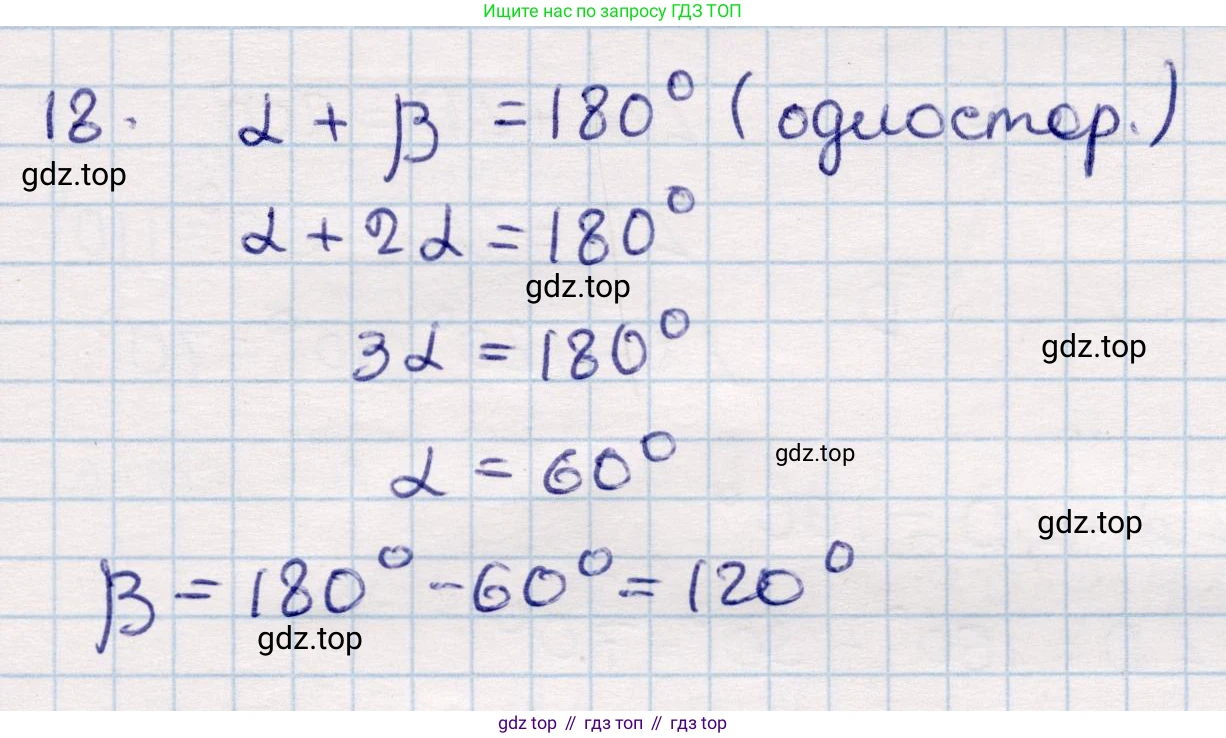 Ищите нас по запросу ГДЗ ТОП
18. α + β = 180° (одностор.)
gdz.top
α + 2α = 180°
gdz.top
3α = 180°
gdz.top
α = 60°
gdz.top
gdz.top
β = 180° - 60° = 120°
gdz.top
gdz top // гдз топ // гдз top